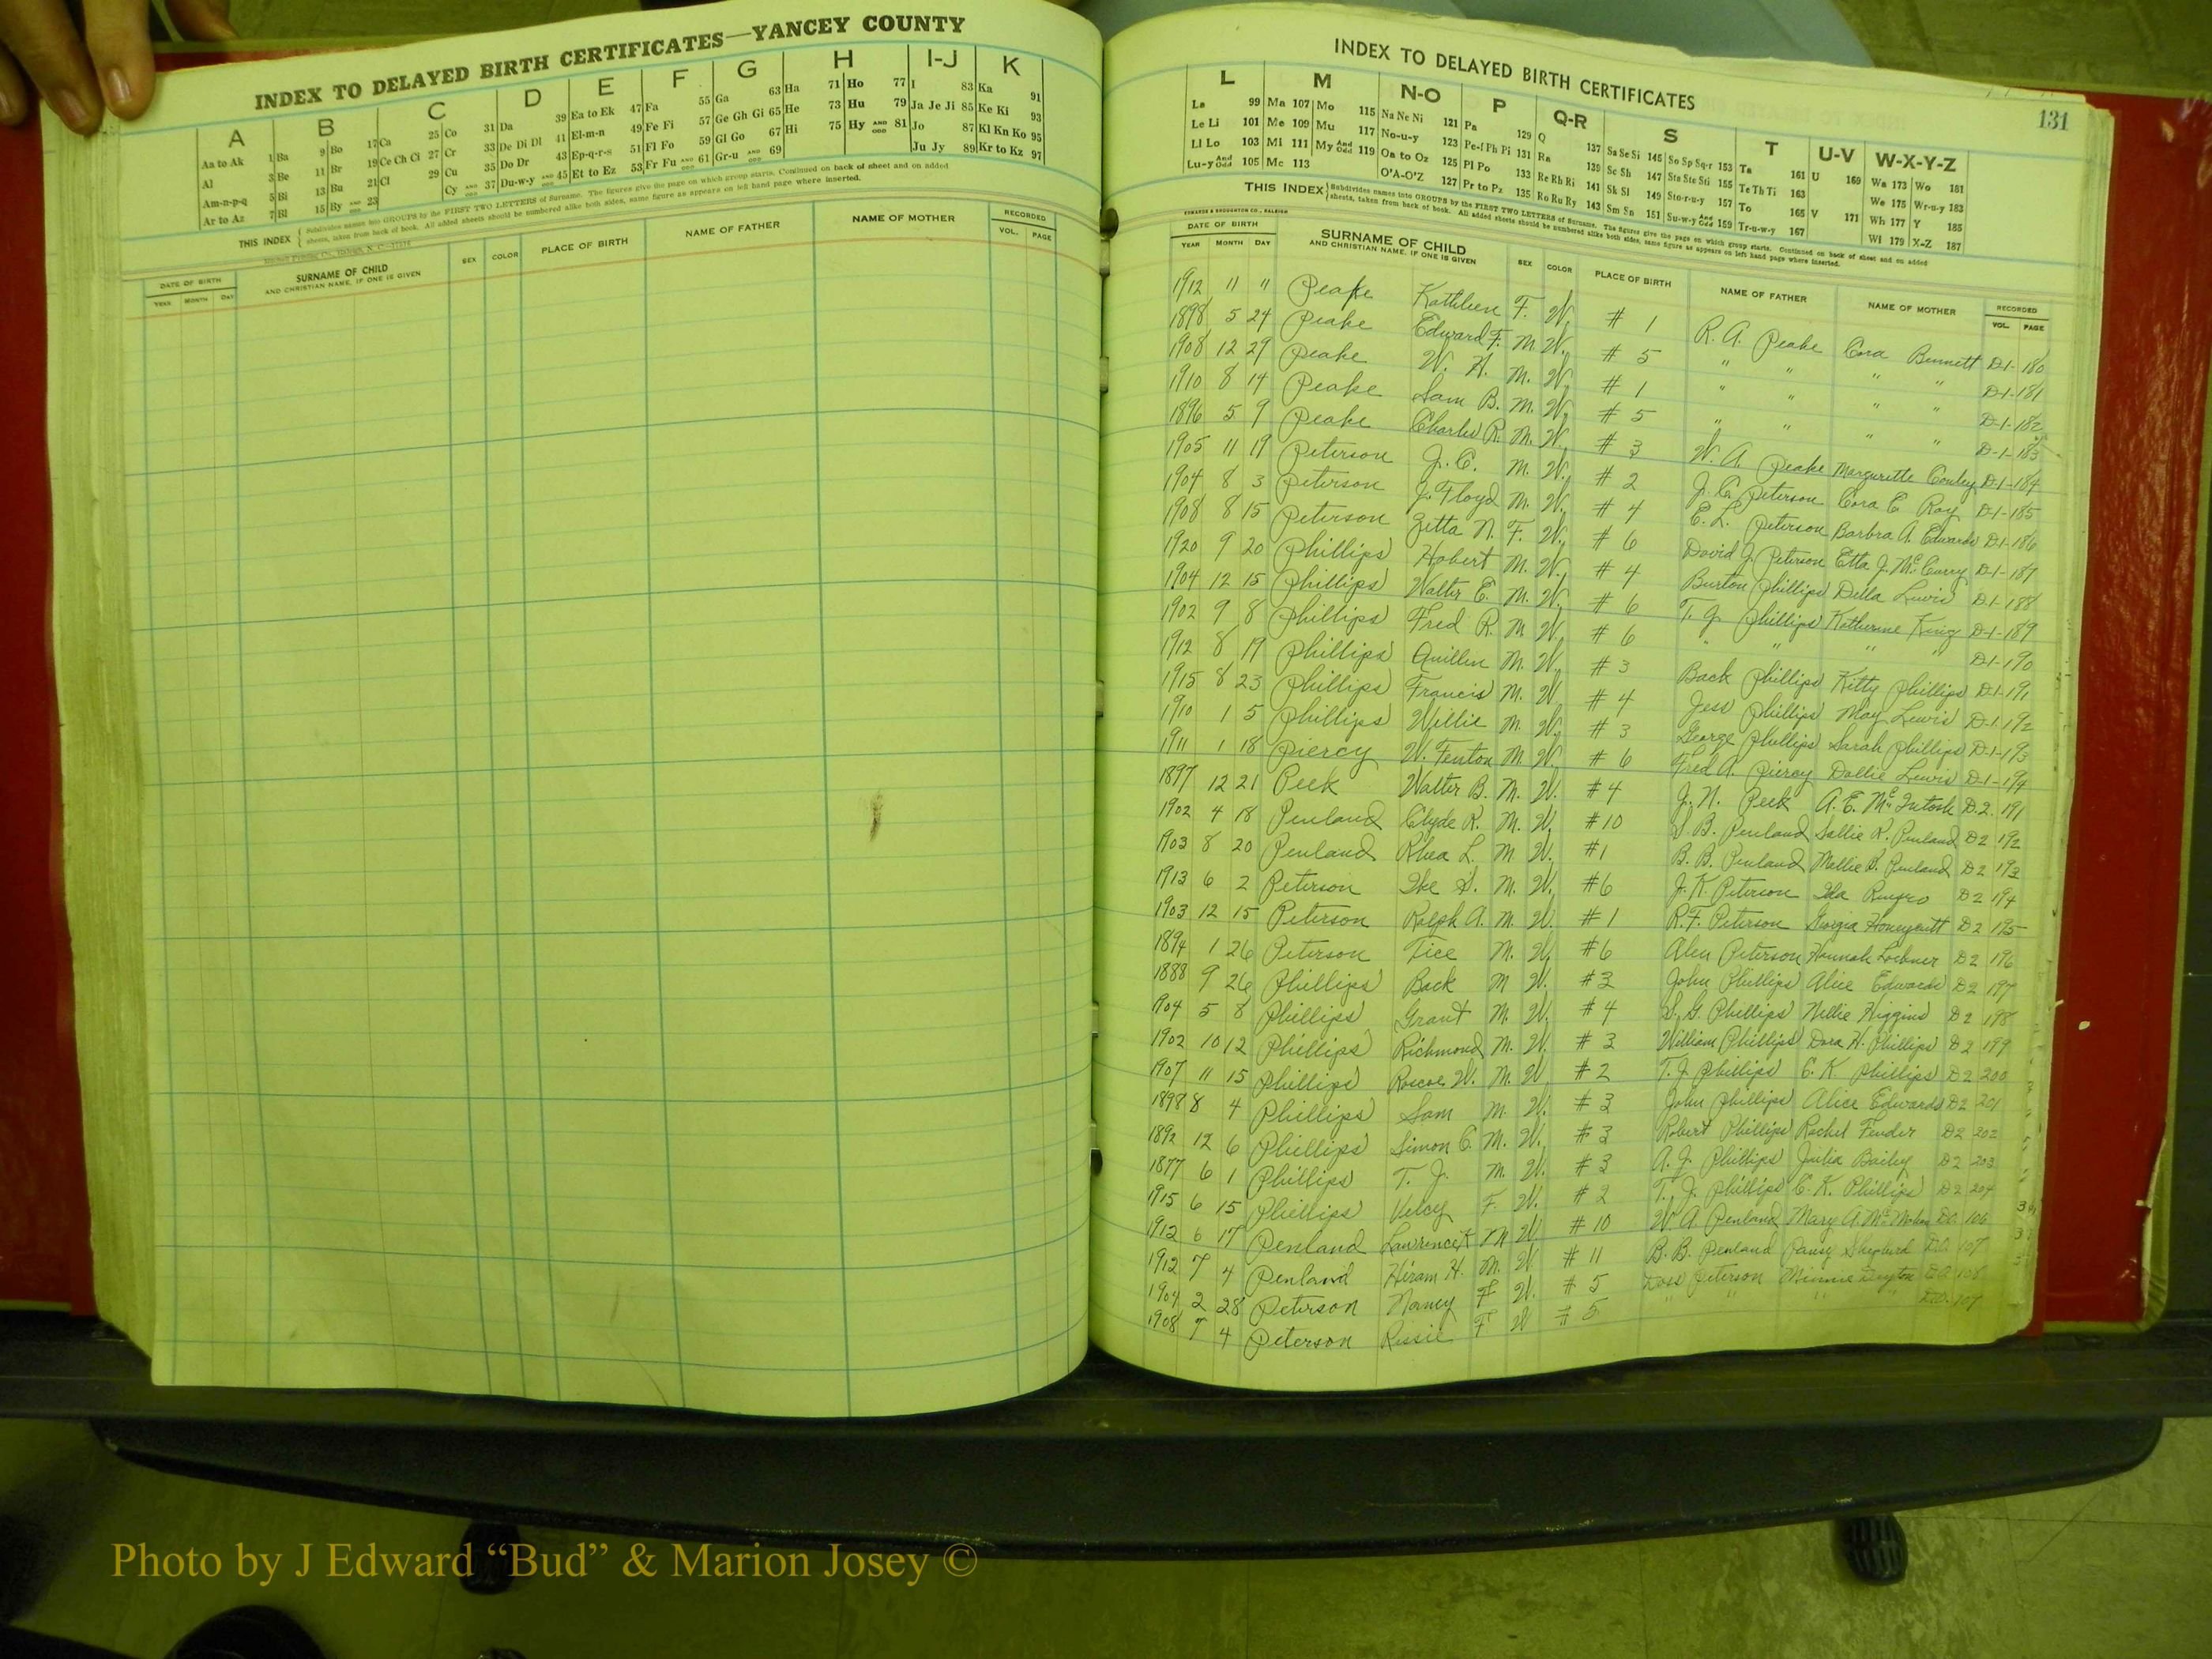 INDEX TO DELAYED BIRTH CERTIFICATES—YANCEY COUNTY
A B C D E F G H I-J K
Aa to Ak 1 Ba 9 Bo 17 Ca 25 Co 31 Da 39 Ea to Ek 47 Fa 55 Ga 63 Ha 71 Ho 77 I 83 Ka 91
Al 3 Be 11 Br 19 Ce Ch Ci 27 Cr 33 De Di Dl 41 El-m-n 49 Fe Fi 57 Ge Gh Gi 65 He 73 Hu 79 Ja Je Ji 85 Ke Ki 93
Am-n-p-q 5 Bi 13 Bu 21 Cl 29 Cu 35 Do Dr 43 Ep-q-r-s 51 Fl Fo 59 Gl Go 67 Hi 75 Hy AND ODD 81 Jo 87 Kl Kn Ko 95
Ar to Az 7 Bl 15 By AND 23 Cy AND 37 Du-w-y AND 45 Et to Ez 53 Fr Fu AND ODD 61 Gr-u AND ODD 69 Ju Jy 89 Kr to Kz 97
THIS INDEX { Subdivides names into GROUPS by the FIRST TWO LETTERS of Surname. The figures give the page on which group starts. Continued on back of sheet and on added
sheets, taken from back of book. All added sheets should be numbered alike both sides, same figure as appears on left hand page where inserted.
DATE OF BIRTH SURNAME OF CHILD SEX COLOR PLACE OF BIRTH NAME OF FATHER NAME OF MOTHER RECORDED
YEAR MONTH DAY AND CHRISTIAN NAME, IF ONE IS GIVEN VOL. PAGE
INDEX TO DELAYED BIRTH CERTIFICATES
131
L M N-O P Q-R S T U-V W-X-Y-Z
La 99 Ma 107 Mo 115 Na Ne Ni 121 Pa 129 Q 137 Sa Se Si 145 So Sp Sq-r 153 Ta 161 U 169 Wa 173 Wo 181
Le Li 101 Me 109 Mu 117 No-u-y 123 Pe-f Ph Pi 131 Ra 139 Sc Sh 147 Sta Ste Sti 155 Te Th Ti 163 We 175 Wr-u-y 183
Ll Lo 103 Mi 111 My And Odd 119 Oa to Oz 125 Pl Po 133 Re Rh Ri 141 Sk Sl 149 Sto-r-u-y 157 To 165 V 171 Wh 177 Y 185
Lu-y And Odd 105 Mc 113 O'A-O'Z 127 Pr to Pz 135 Ro Ru Ry 143 Sm Sn 151 Su-w-y And Odd 159 Tr-u-w-y 167 Wi 179 X-Z 187
THIS INDEX { Subdivides names into GROUPS by the FIRST TWO LETTERS of Surname. The figures give the page on which group starts. Continued on back of sheet and on added
sheets, taken from back of book. All added sheets should be numbered alike both sides, same figure as appears on left hand page where inserted.
EDWARDS & BROUGHTON CO., RALEIGH
DATE OF BIRTH SURNAME OF CHILD SEX COLOR PLACE OF BIRTH NAME OF FATHER NAME OF MOTHER RECORDED
YEAR MONTH DAY AND CHRISTIAN NAME, IF ONE IS GIVEN VOL. PAGE
1912 11 11 Peake Kathleen F. W. # 1 R. A. Peake Cora Bennett D-1-180
1898 5 24 Peake Edward F. M. W. # 5 " " " " D-1-181
1908 12 29 Peake W. H. M. W. # 1 " " " " D-1-182
1910 8 14 Peake Sam B. M. W. # 5 " " " " D-1-183
1896 5 9 Peake Charles R. M. W. # 3 W. A. Peake Margurette Conley D-1-184
1905 11 19 Peterson J. C. M. W. # 2 J. C. Peterson Cora E Ray D-1-185
1904 8 3 Peterson J. Floyd M. W. # 4 E. L. Peterson Barbra A. Edwards D-1-186
1908 8 15 Peterson Zetta N. F. W. # 6 David J. Peterson Etta J. McCurry D-1-187
1920 9 20 Phillips Hobert M. W. # 4 Burton Phillips Della Lewis D-1-188
1904 12 15 Phillips Walter E. M. W. # 6 T. J. Phillips Katherine King D-1-189
1902 9 8 Phillips Fred R. M W. # 6 " " " " D-1-190
1912 8 19 Phillips Quillin M. W. # 3 Back Phillips Kitty Phillips D-1-191
1915 8 23 Phillips Francis M. W # 4 Jess Phillips May Lewis D-1-192
1910 1 5 Phillips Willie M. W. # 3 George Phillips Sarah Phillips D-1-193
1911 1 18 Piercy W. Fenton M. W. # 6 Fred A. Piercy Dollie Lewis D-1-194
1897 12 21 Peek Walter B. M. W. # 4 J. N. Peek A. E. McIntosh D.2. 191
1902 4 18 Penland Clyde R. M. W. # 10 S. B. Penland Sallie R. Penland D2 192
1903 8 20 Penland Rhea L. M W. # 1 B. B. Penland Mellie B. Penland D2 193
1913 6 2 Peterson Ike S. M. W. # 6 J. K Peterson Ida D2 194
1903 12 15 Peterson Ralph A. M. W. # 1 R. F. Peterson Georgia Honeycutt D2 195
1894 1 26 Peterson Tice M. W. # 6 Alen Peterson Hannah D2 196
1888 9 26 Phillips Back M W. # 3 John Phillips Alice Edwards D2 197
1904 5 8 Phillips Grant M. W. # 4 S. G. Phillips Nellie Higgins D2 198
1902 10 12 Phillips Richmond M. W. # 3 William Phillips Dora H. Phillips D2 199
1907 11 15 Phillips Roscoe W. M. W # 2 T. J Phillips C. K Phillips D2 200
1898 8 4 Phillips Sam M. W. # 3 John Phillips Alice Edwards D2 201
1892 12 6 Phillips Simon C. M. W. # 3 Robert Phillips Rachel Fender D2 202
1877 6 1 Phillips T. J. M. W. # 3 A. J. Phillips Julia Bailey D2 203
1915 6 15 Phillips Velcy F. W. # 2 T. J. Phillips C. K. Phillips D2 204
1912 6 17 Penland Lawrence K M W # 10 W. A Penland Mary A. 106
1912 7 4 Penland Hiram H. M. W # 11 B. B. Penland Pansy Shepherd 107
1904 2 28 Peterson Nancy F W. # 5 Peterson Minnie 108
1908 7 4 Peterson F W # 5 " " " "
Photo by J Edward “Bud” & Marion Josey ©